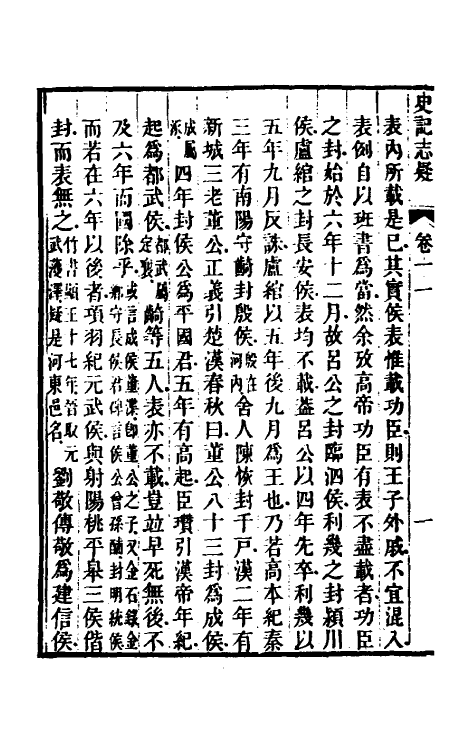 史記志疑
卷十一
一
表內所載是已其實侯表惟載功臣則王子外戚不宜混入
表例自以班書爲當然余攷高帝功臣有表不盡載者功臣
之封始於六年十二月故呂公之封臨泗侯利幾之封潁川
侯盧綰之封長安侯表均不載蓋呂公以四年先卒利幾以
五年九月反誅盧綰以五年後九月爲王也乃若高本紀秦
三年有南陽守齮封殷侯殷在河內舍人陳恢封千戸漢二年有
新城三老董公正義引楚漢春秋曰董公八十三封爲成侯
成屬涿四年封侯公爲平國君五年有高起臣瓚引漢帝年紀
起爲都武侯都武屬定襄齮等五人表亦不載豈竝早死無後不
及六年而國除乎或言成侯董渫卽董公之子又金石錄金鄉守長侯君碑言侯公曾孫酺封明統侯
而若在六年以後者項羽紀元武侯與射陽桃平皋三侯偕
封而表無之竹書顯王十七年晉取元武濩澤疑是河東邑名劉敬傳敬爲建信侯